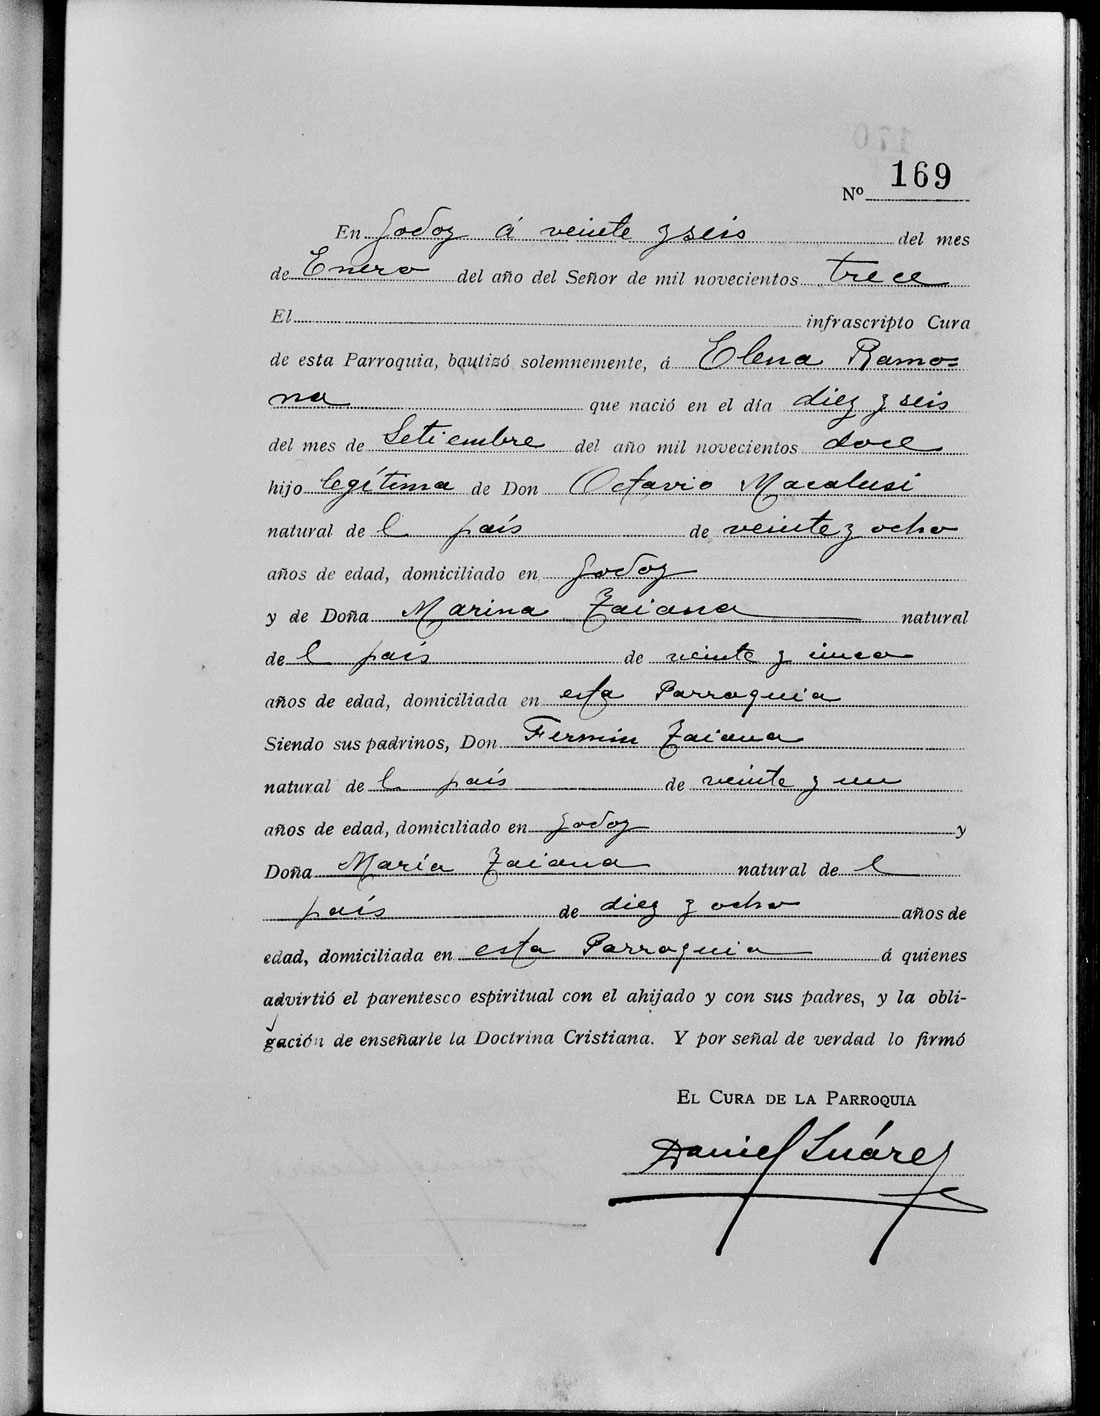 170
Nº 169
En Godoy á veinte y seis del mes
de Enero del año del Señor de mil novecientos trece
El infrascripto Cura
de esta Parroquia, bautizó solemnemente, á Elena Ramo=
na que nació en el día diez y seis
del mes de Setiembre del año mil novecientos doce
hijo legítima de Don Octavio Macalusi
natural de l país de veinte y ocho
años de edad, domiciliado en Godoy
y de Doña Marina Zaiana natural
de l país de veinte y cinco
años de edad, domiciliada en esta Parroquia
Siendo sus padrinos, Don Fermin Zaiana
natural de l país de veinte y un
años de edad, domiciliado en Godoy y
Doña María Zaiana natural de l
país de diez y ocho años de
edad, domiciliada en esta Parroquia á quienes
advirtió el parentesco espiritual con el ahijado y con sus padres, y la obli-
gación de enseñarle la Doctrina Cristiana. Y por señal de verdad lo firmó
EL CURA DE LA PARROQUIA
Daniel Suárez